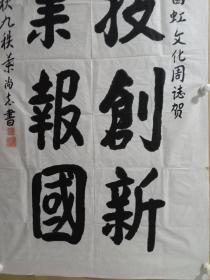 虹文化周誌賀
技創新
業報國
秋九秩葉尚志書